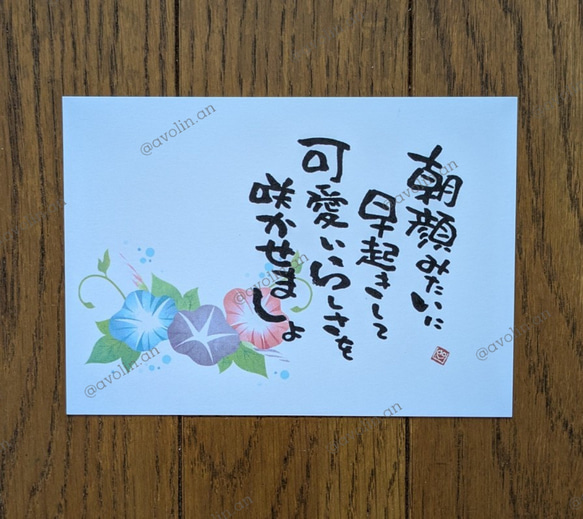 朝顔みたいに
早起きして
可愛いらしさを
咲かせましょ
@avolin.an
@avolin.an
@avolin.an
@avolin.an
@avolin.an
@avolin.an